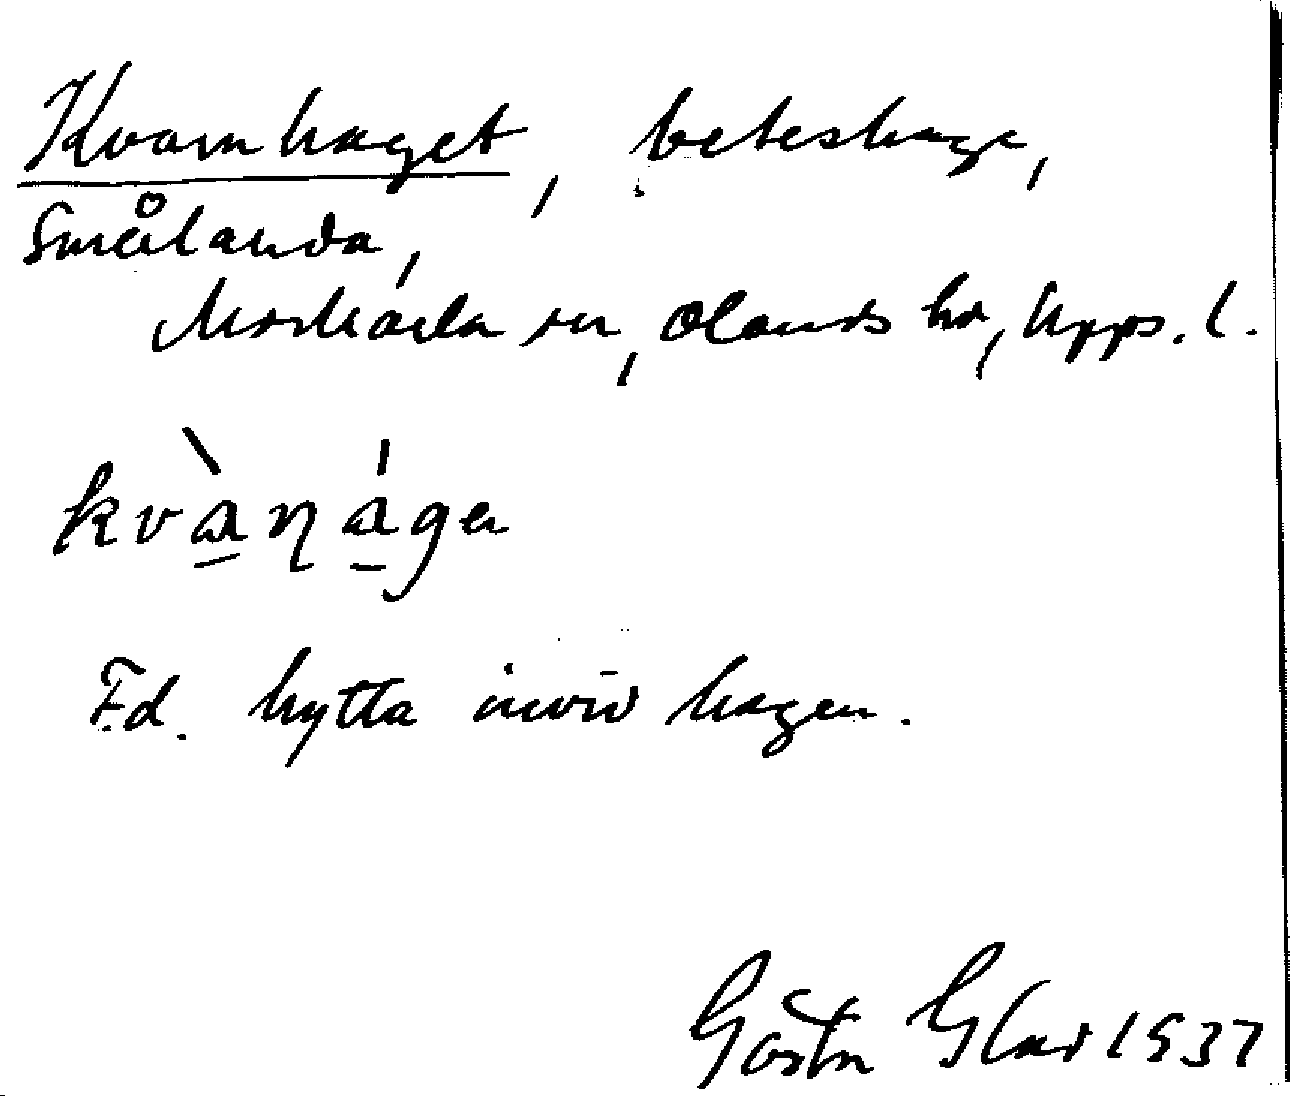 Kvarnhaget, beteshage,
Smålanda,
Morkarla sn, Olands hd, Upps. l.
kvàṉága
F.d. hytta invid hagen.
Gösta Glad 1937